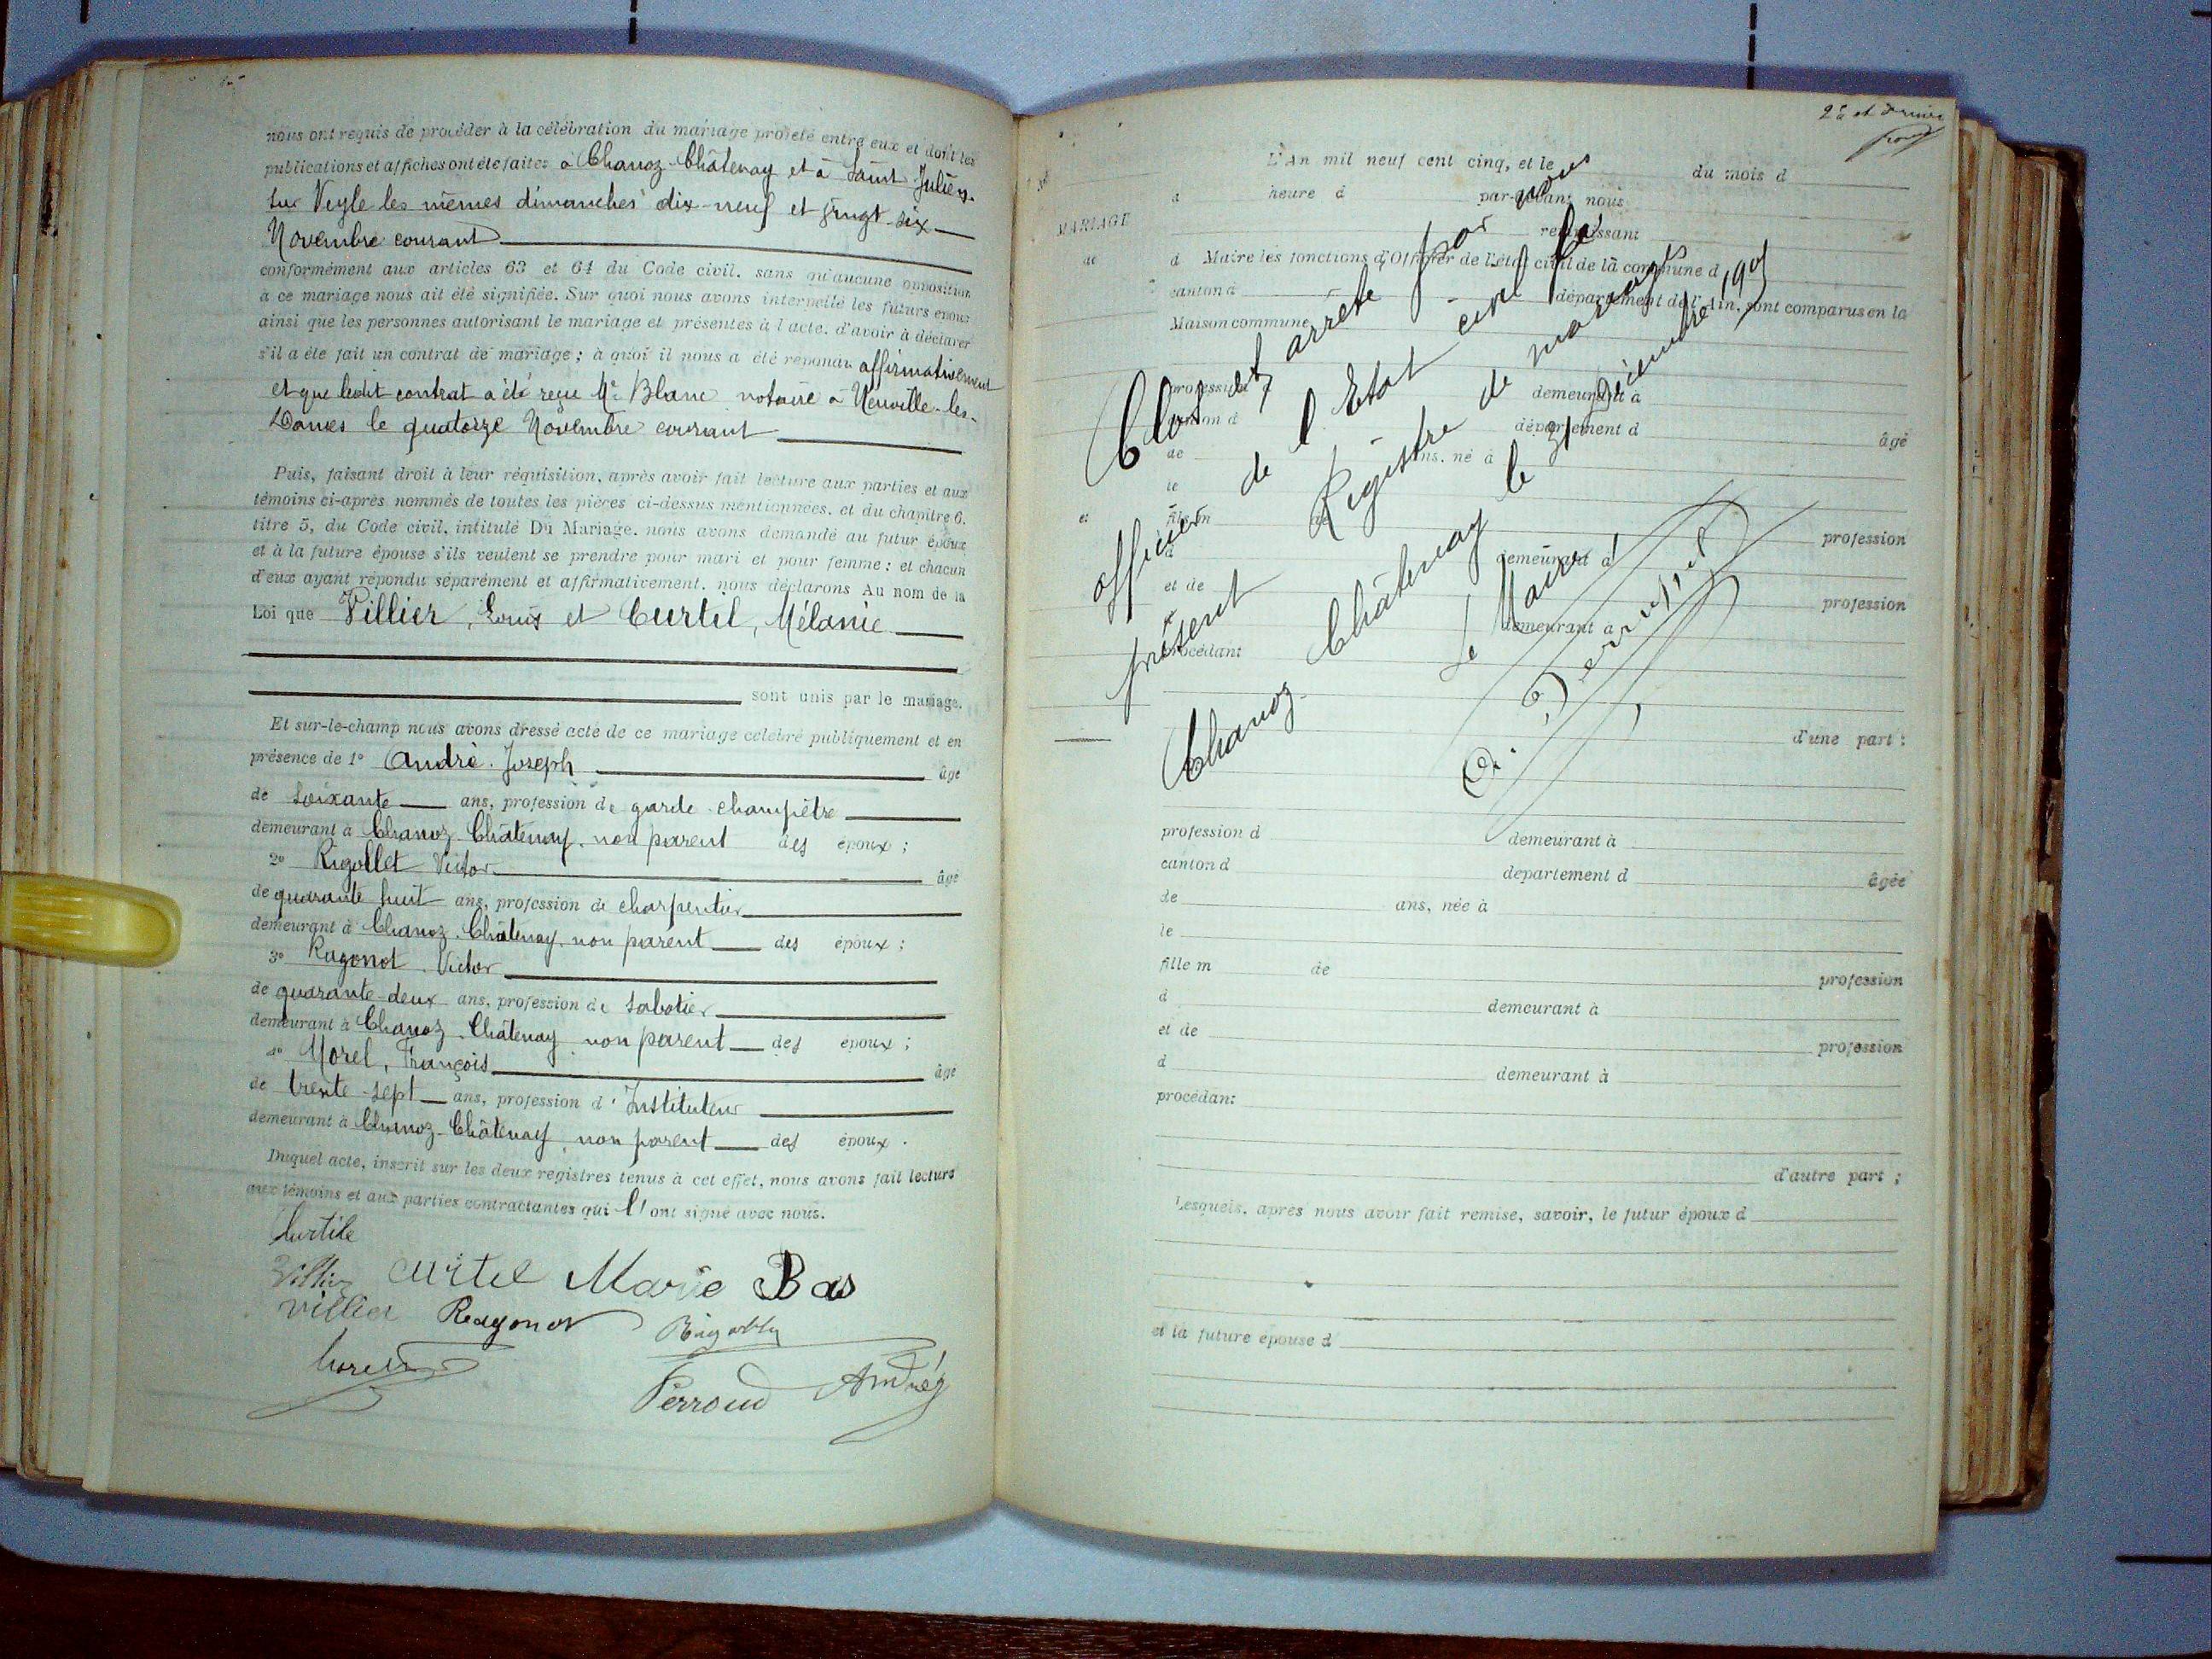 nous ont requis de procéder à la célébration du mariage projeté entre eux et dont les
publications et affiches ont été faites à Chanoz-Châtenay et à Saint Julien-
sur Veyle les mêmes dimanches dix-neuf et vingt-six
Novembre courant
conformément aux articles 63 et 64 du Code civil, sans qu'aucune opposition
à ce mariage nous ait été signifiée. Sur quoi nous avons interpellé les futurs époux
ainsi que les personnes autorisant le mariage et présentes à l'acte, d'avoir à déclarer
s'il a été fait un contrat de mariage ; à quoi il nous a été répondu affirmativement
et que ledit contrat a été reçu Me Blanc notaire à Neuville-les-
Dames le quatorze Novembre courant
Puis, faisant droit à leur réquisition, après avoir fait lecture aux parties et aux
témoins ci-après nommés de toutes les pièces ci-dessus mentionnées, et du chapitre 6,
titre 5, du Code civil, intitulé Du Mariage, nous avons demandé au futur époux
et à la future épouse s'ils veulent se prendre pour mari et pour femme ; et chacun
d'eux ayant répondu séparément et affirmativement, nous déclarons Au nom de la
Loi que Villier, Louis et Curtil, Mélanie
sont unis par le mariage.
Et sur-le-champ nous avons dressé acte de ce mariage célébré publiquement et en
présence de 1° André. Joseph âgé
de soixante ans, profession de garde-champêtre
demeurant à Chanoz-Châtenay, non parent des époux ;
2° Rigollet Victor âgé
de quarante huit ans, profession de charpentier
demeurant à Chanoz-Châtenay, non parent des époux ;
3° Ragonot Victor
de quarante-deux ans, profession de sabotier
demeurant à Chanoz-Châtenay non parent des époux ;
4° Morel, François âgé
de trente-sept ans, profession d'Instituteur
demeurant à Chanoz-Châtenay, non parent des époux.
Duquel acte, inscrit sur les deux registres tenus à cet effet, nous avons fait lecture
aux témoins et aux parties contractantes qui l'ont signé avec nous.
Curtile
Villier Curtel Marie Bas
Villier Ragonot
Morel Perroud André
2e et dernier
L'An mil neuf cent cinq, et le du mois d
à heure d par-devant nous
MARIAGE
de
d Maire les fonctions d'Officier de l'état civil de la commune d
canton d département de l'Ain, sont comparus en la
Maison commune
profession d demeurant à
canton d département d âgé
de ans, né à
le
et
fils m de profession
d demeurant à
et de profession
demeurant à
procédant
d'une part ;
Clos et arrêté par nous
officier de l'Etat civil le
présent Registre de mariages
Chanoz-Châtenay le 31 Décembre 1905
Le Maire
profession d demeurant à
canton d département d âgée
de ans, née à
le
fille m de profession
d demeurant à
et de profession
d demeurant à
procédant
d'autre part ;
Lesquels, après nous avoir fait remise, savoir, le futur époux d
et la future épouse d